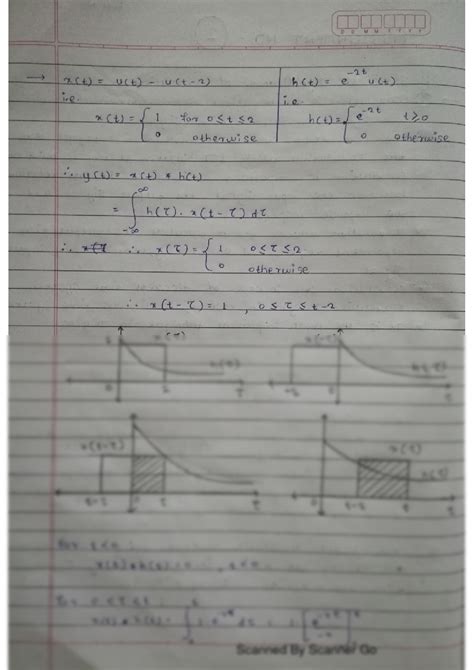 D D M M Y Y Y Y
→ x(t) = u(t) - u(t-2)
i.e.
x(t) = { 1 for 0 ≤ t ≤ 2
0 otherwise
h(t) = e^{-2t} u(t)
i.e
h(t) = { e^{-2t} t ≥ 0
0 otherwise
∴ y(t) = x(t) * h(t)
= ∫_{-∞}^{∞} h(τ). x(t - τ) dτ
∴ ∴ x(τ) = { 1 0 ≤ τ ≤ 2
0 otherwise
∴ x(t - τ) = 1 , 0 ≤ τ ≤ t-2
x(τ)
h(τ)
0 2 τ
x(-τ)
h(τ)
-2 0 τ
x(t-τ)
t-2 0 t τ
h(τ)
0 t-2 t τ
For t<0
x(t) * h(t) = 0 , t<0
For 0 ≤ τ ≤ t
x(t) * h(t) =
Scanned By Scanner Go